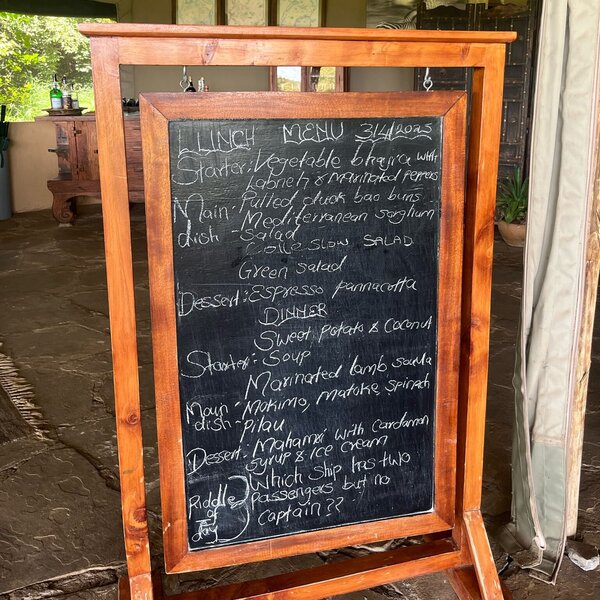 LUNCH MENU 3/4/2025
Starter: Vegetable bhajia with
Labneh & Marinated peppers
Main: Pulled duck bao buns
dish - Mediterranean sorghum
Salad
Cole Slow SALAD
Green salad
Dessert: Espresso pannacotta
DINNER
Sweet potato & Coconut
Starter: Soup
Marinated lamb
Main - Mokimo, Matoke, spinach
dish - Pilau
Dessert: Mahamri with Cardamon
syrup & ice cream
Riddle of day
Which ship has two
passengers but no
captain??